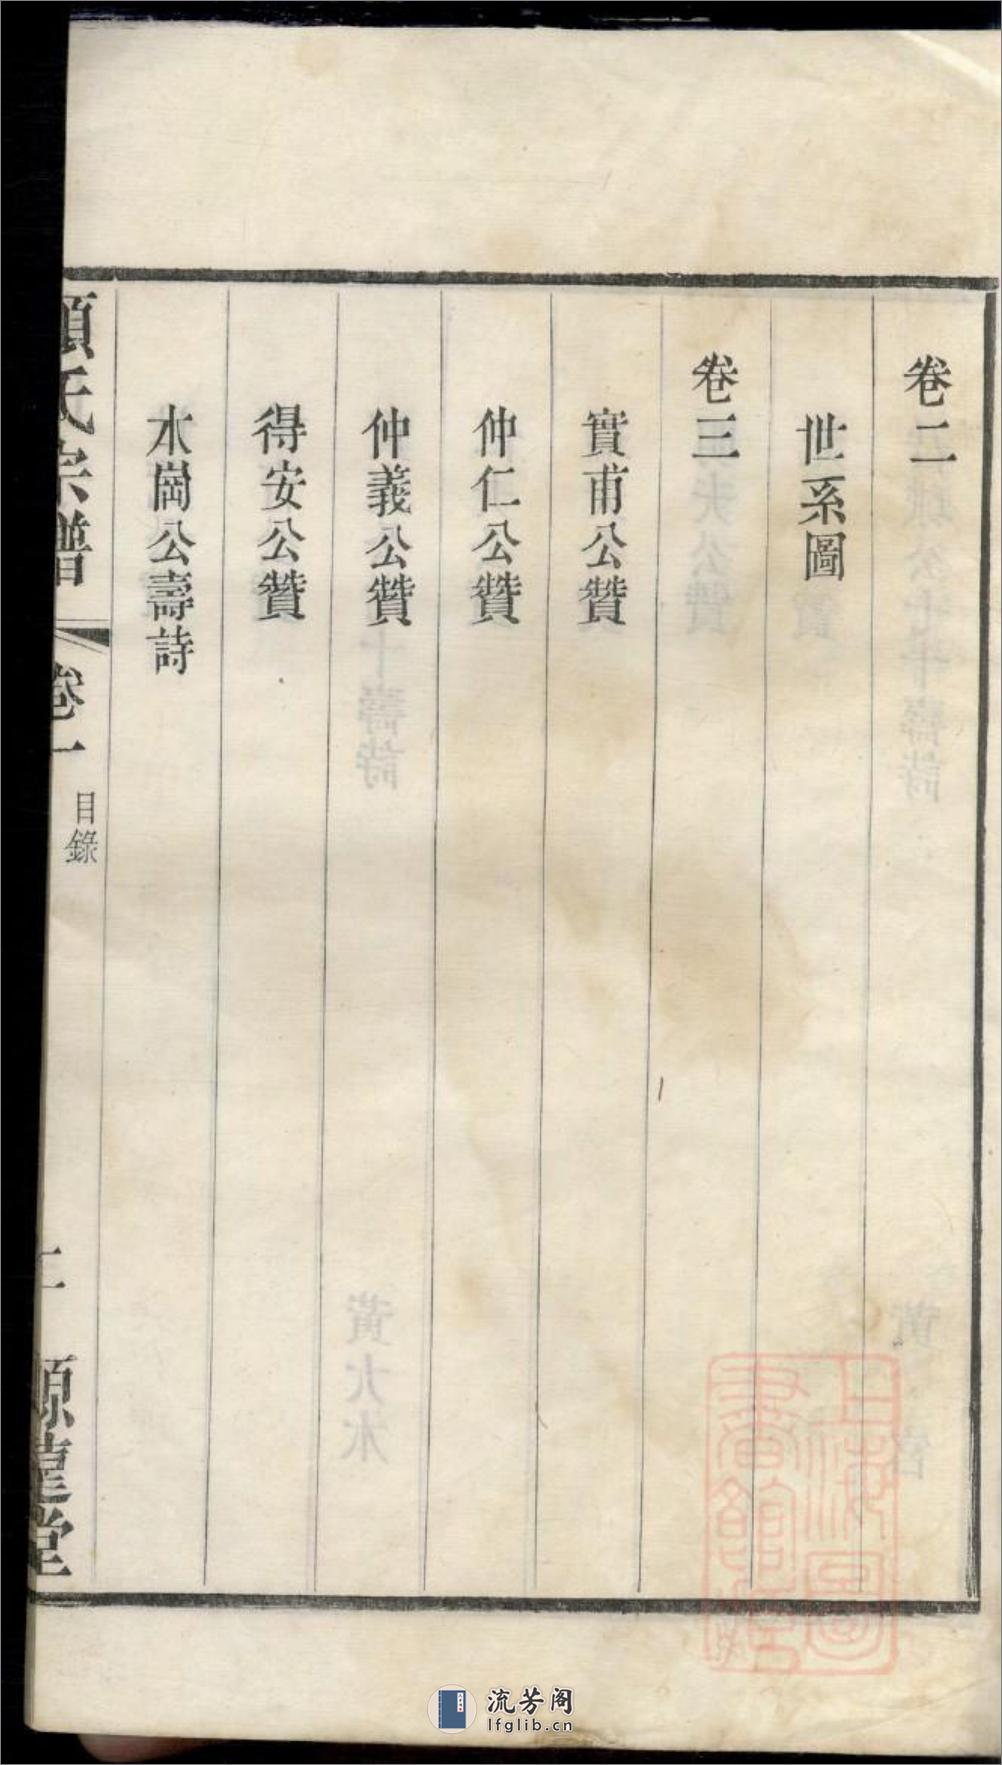 卷二
世系圖
卷三
實甫公贊
仲仁公贊
仲義公贊
得安公贊
木崗公壽詩
氏宗譜
卷一
目錄
二
源龍堂
上海圖
書館藏
流芳阁
lfglib.cn